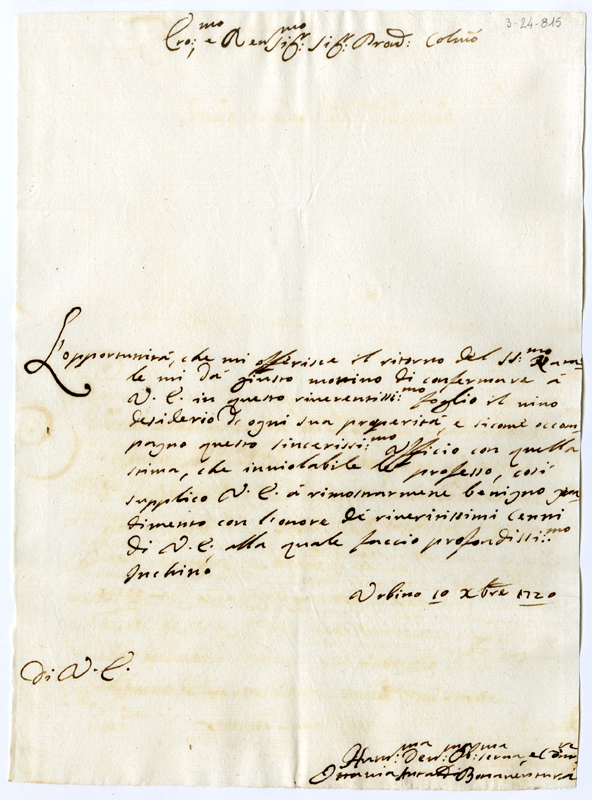 3-24-815
Ero:mo e Ren:mo Sig:r Sig:r Prad:
L'opportunità, che mi offerisce il ritorno del SS:mo Nata-
le mi dà giusto mottivo di confermare à
V. E. in questo riverentissi:mo foglio il vivo
desiderio d'ogni sua prosperità, e sicome accom
pagno questo sincerissi:mo officio con quella
stima, che inviolabile le professo, così
supplico V. E. à rimostrarmene benigno gra-
dimento con l'onore dè riveritissimi Cenni
di V. E. alla quale faccio profondissi:mo
Inchino
Urbino 10 Xbre 1720
Di V. E.
Hum:ma Dev:ma Ob:ma serva
Ottavia Bonaventura